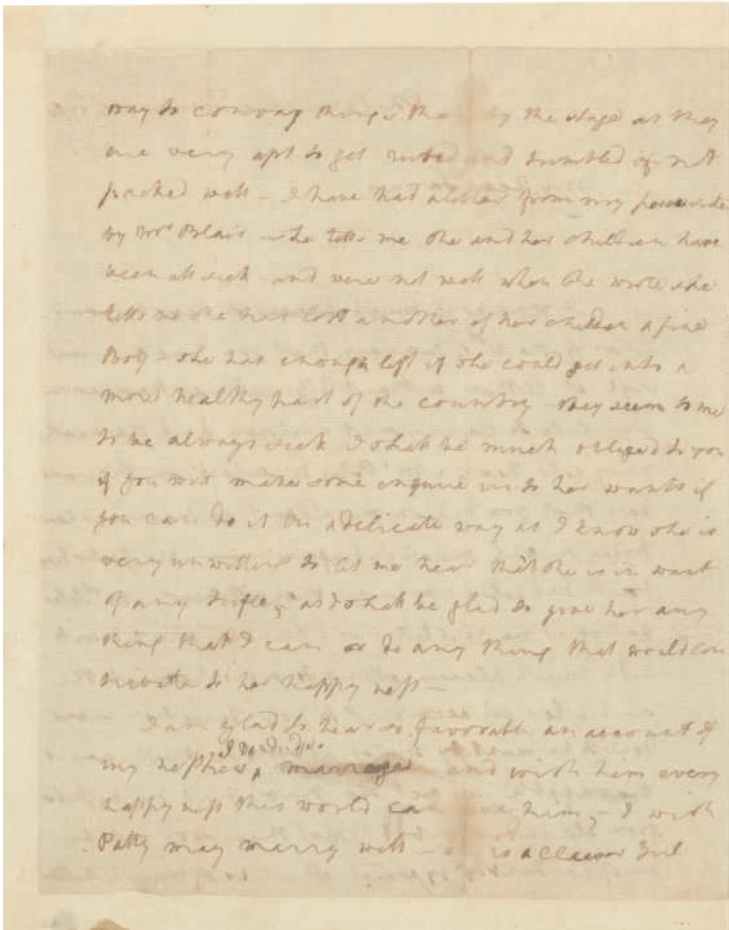 way to convay things than by the stage as they
are very apt to get rubed and tumbled if not
packed well – I have had a letter from my
by Mrs Blair – she tells me she and her children have
been all sick – and were not well when she wrote she
tells me she has lost another of her childen a fine
Boy – she has enough left if she could get into a
more healthy part of the country they seem to me
to be always sick I shall be much obliged to you
if you will make some enquire in to her wants if
you can do it in a delicate way as I know she is
very unwilling to let me hear that she is in want
of any trifle, as I shall be glad to give her any
thing that I can or do any thing that would con
tribute to her happy ness –
I am glad to hear so favorable an account of
my nephew marrage and wish him every
happy ness this world can him – I wish
Patty may marry well – is a Clever Girl